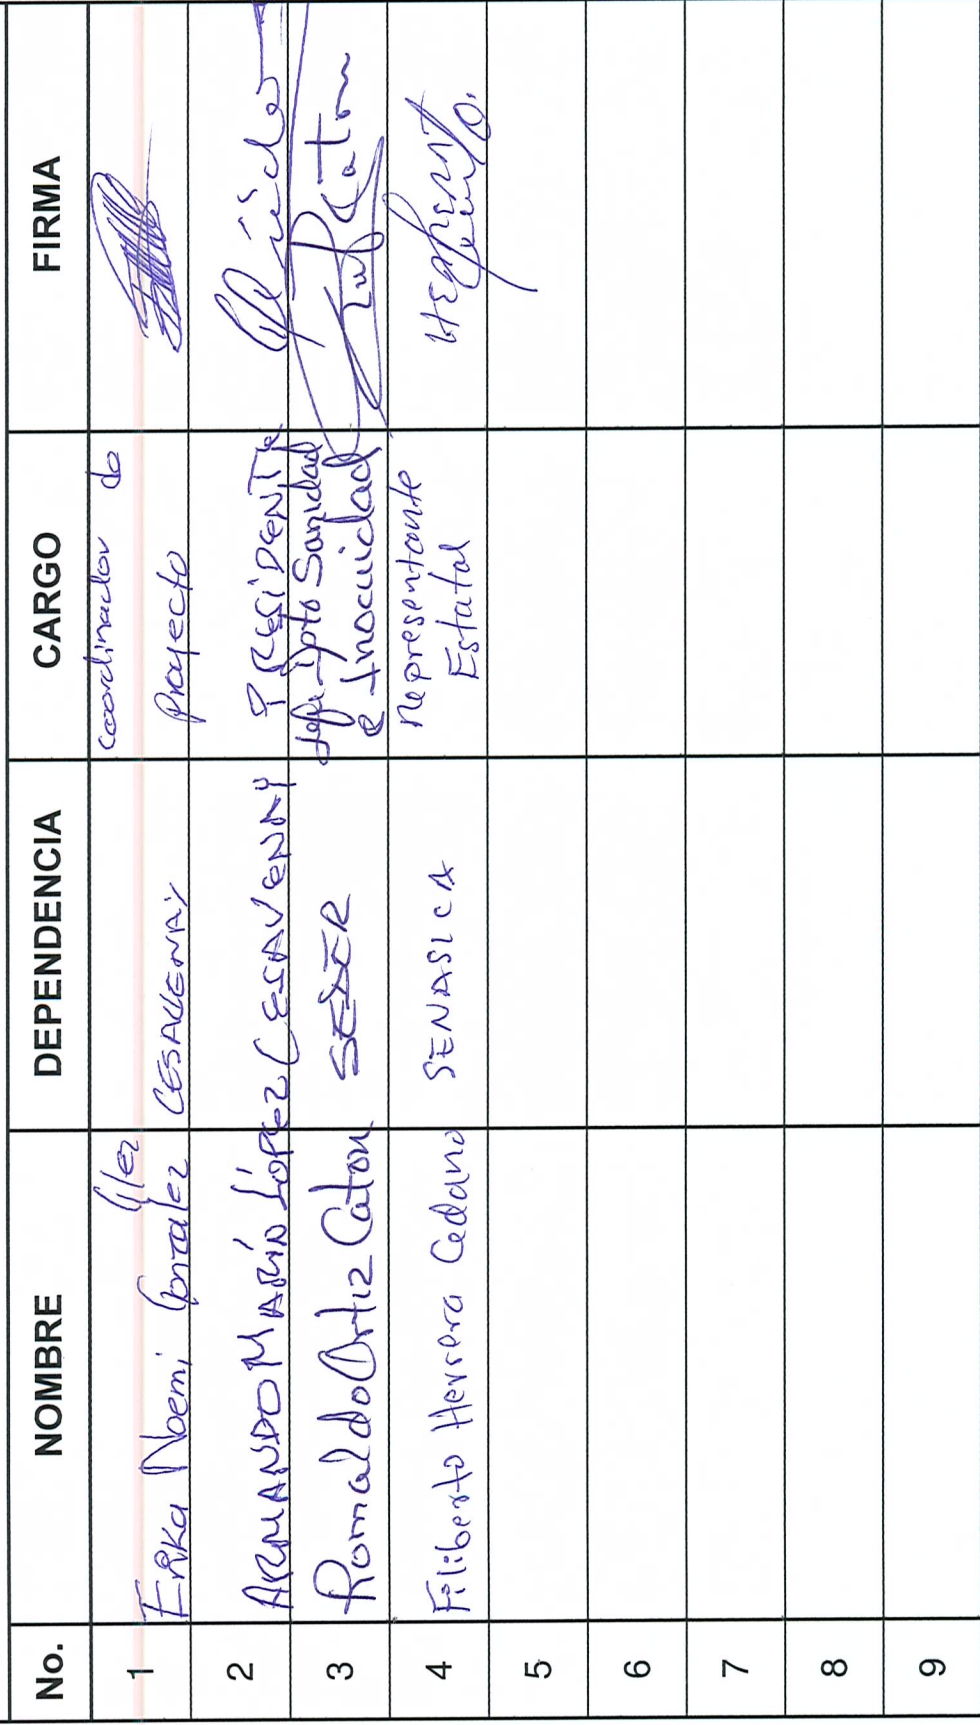 No. NOMBRE DEPENDENCIA CARGO FIRMA
1 Erika Noemi Gonzalez CESAVENAY coordinador de Proyecto
2 ARMANDO MARÍN LÓPEZ CESAVENAY PRESIDENTE
3 Romaldo Ortiz Caton SEDER Jefe Dpto Sanidad e Inocuidad
4 Filiberto Herrera Cedano SENASICA Representante Estatal
5
6
7
8
9